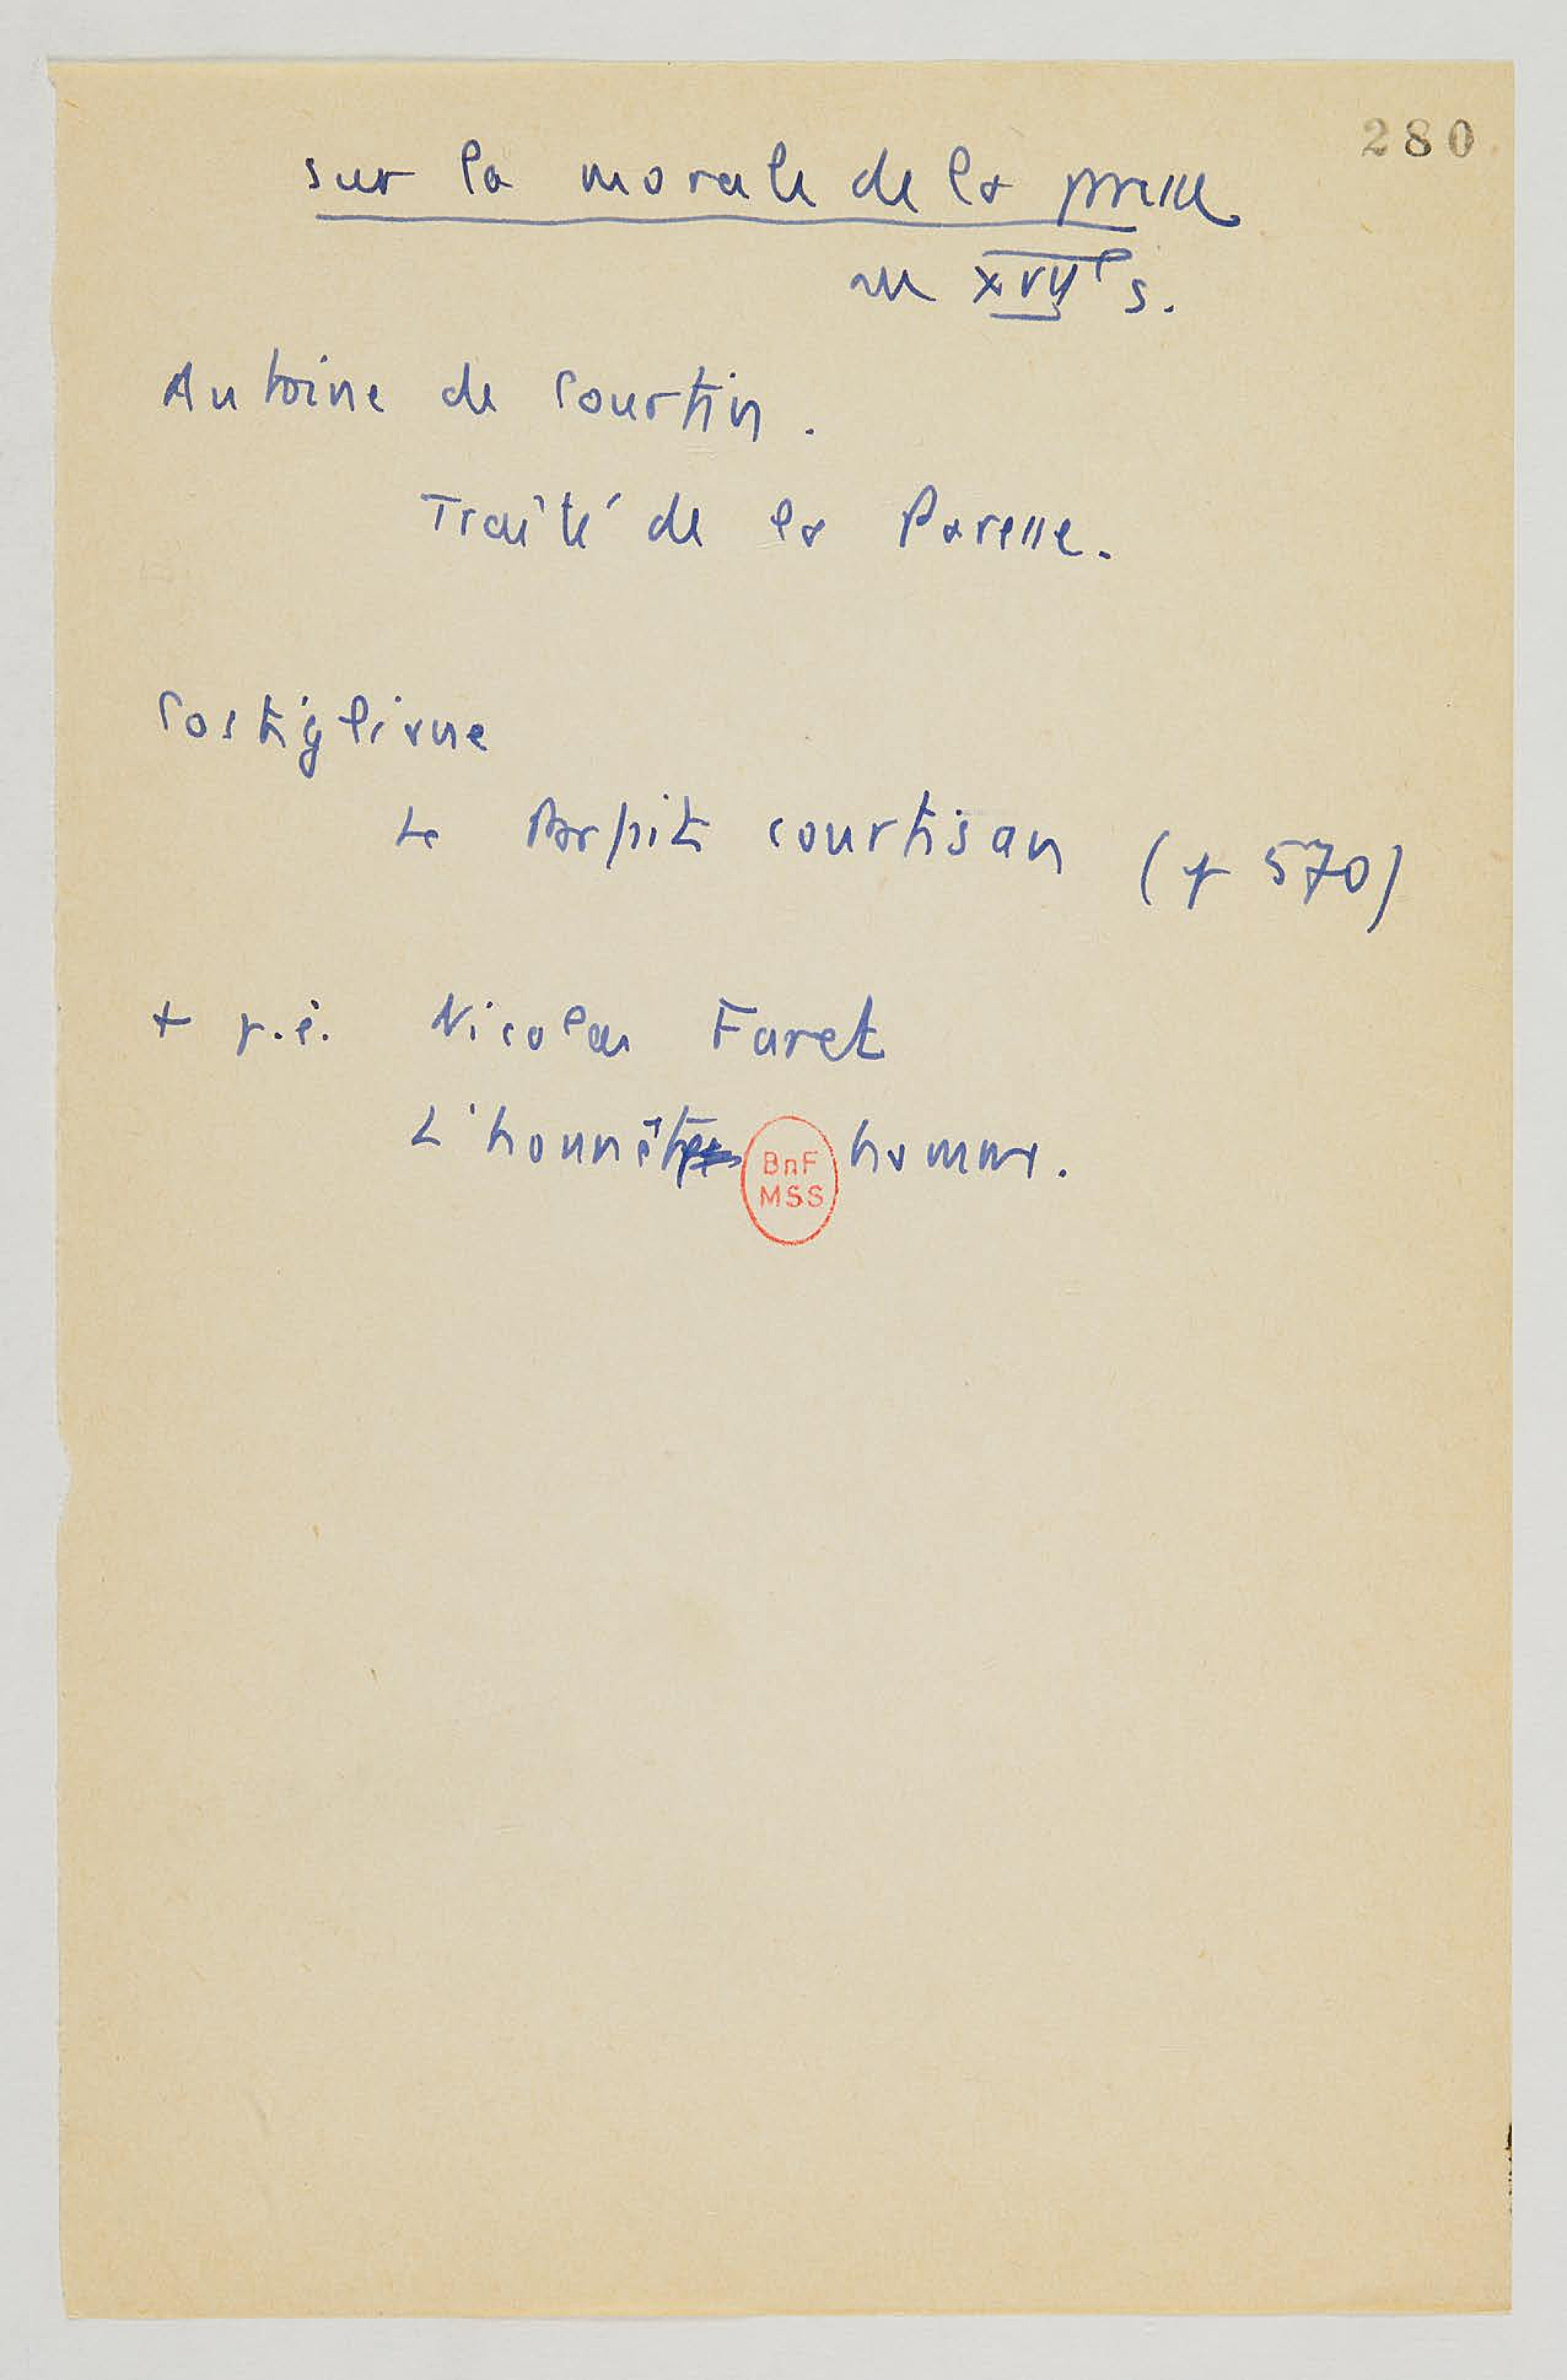 280
sur la morale de la paresse
au XVIIe s.
Antoine de Courtin.
Traité de la Paresse.
Castiglione
Le Parfait courtisan ( 570)
+ p.ê. Nicolas Faret
L'honnête homme.
BnF
MSS